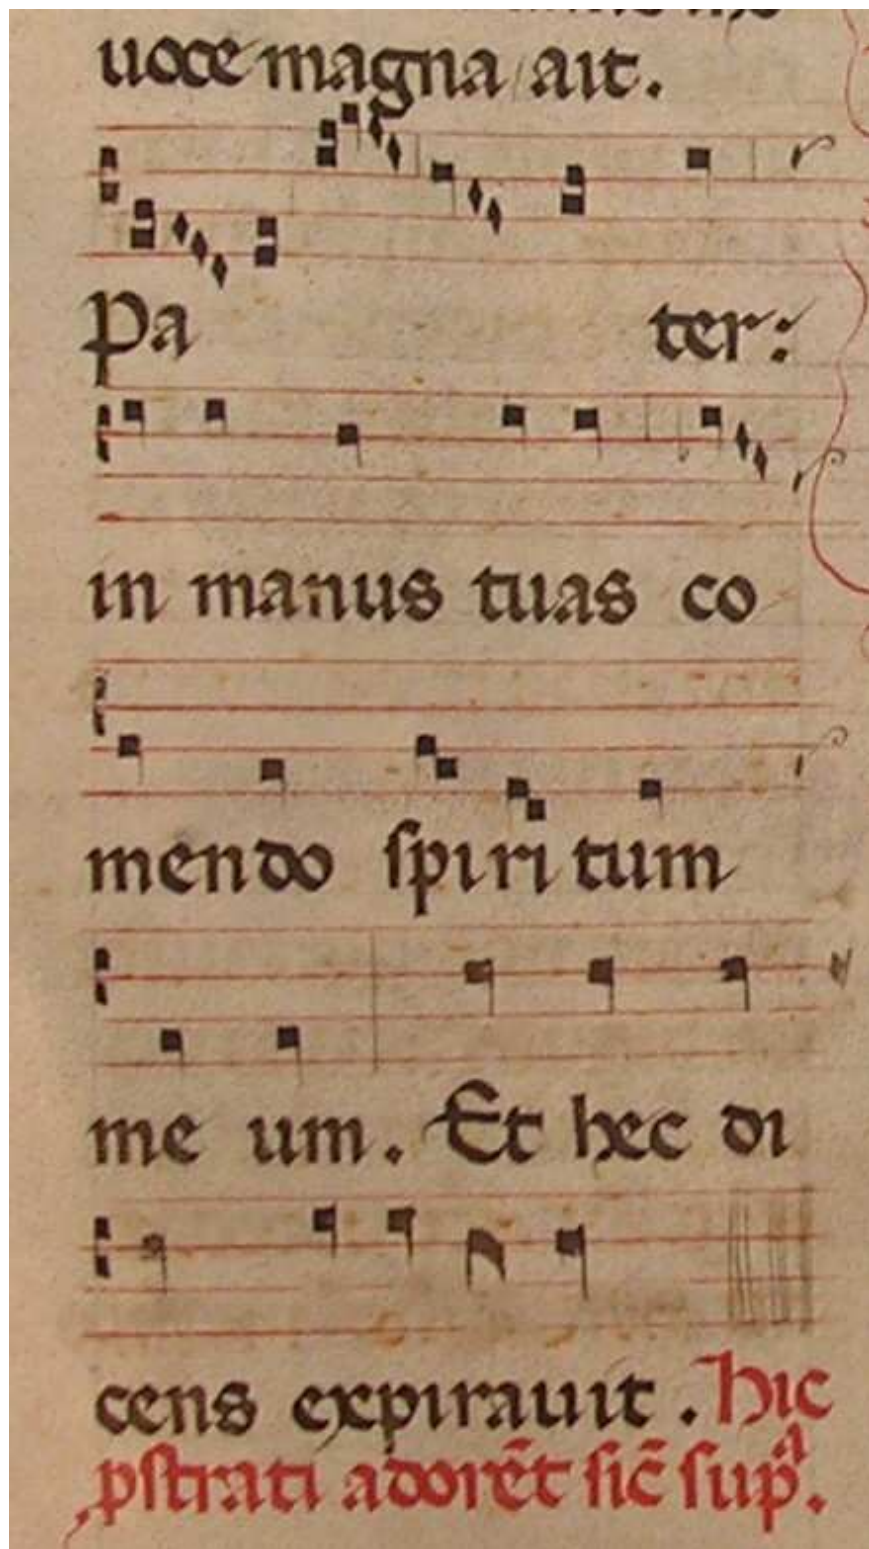 uoce magna ait.
Pa ter:
in manus tuas co
mendo spiritum
me um. Et hec di
cens expirauit. Hic
pstrati adorēt sic̄ supᵃ.